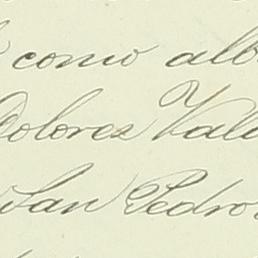 como alb
Dolores Val
San Pedro